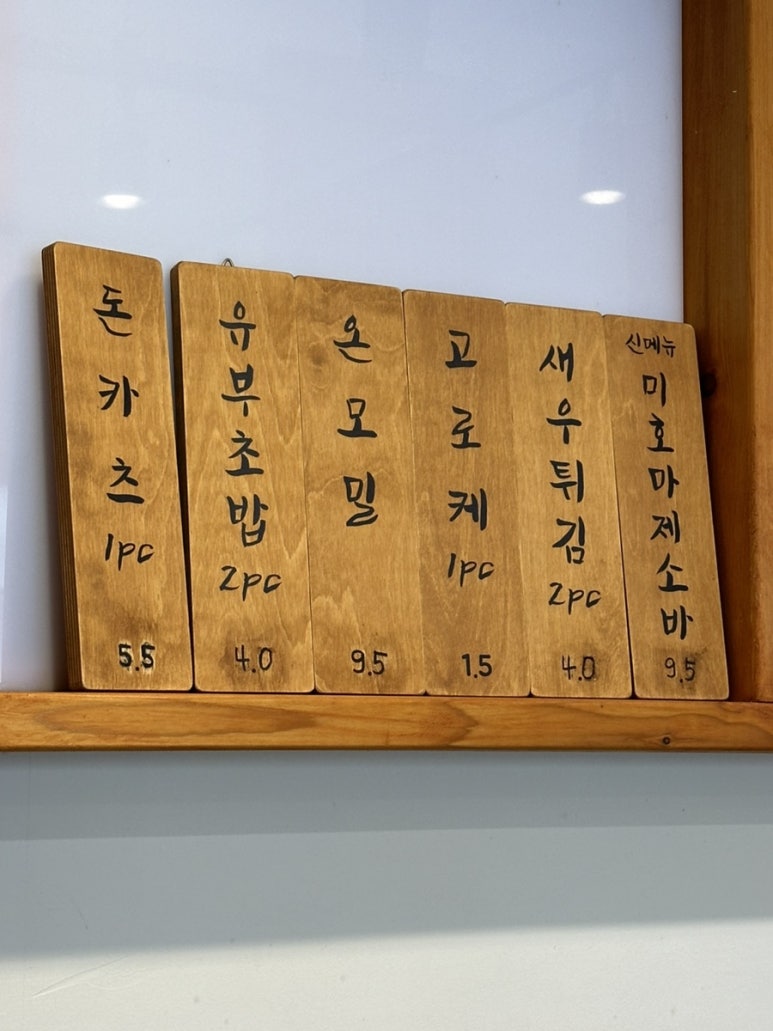 돈카츠
1pc
5.5
유부초밥
2pc
4.0
온모밀
9.5
고로케
1pc
1.5
새우튀김
2pc
4.0
신메뉴
미호마제소바
9.5